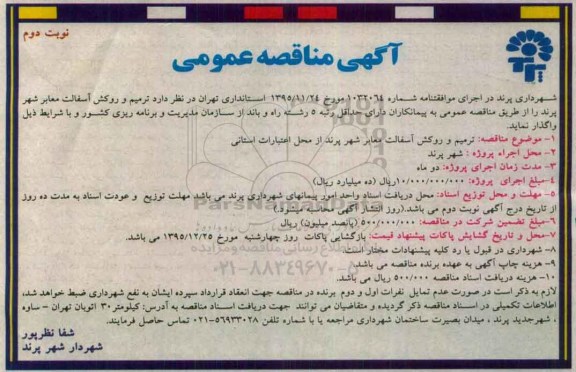 نوبت دوم
آگهی مناقصه عمومی
پرند
شهرداری پرند در اجرای موافقتنامه شماره ۱۰۳۲۰۶۴ مورخ ۱۳۹۵/۱۱/۲۴ استانداری تهران در نظر دارد ترمیم و روکش آسفالت معابر شهر
پرند را از طریق مناقصه عمومی به پیمانکاران دارای حداقل رتبه ۵ رشته راه و باند از سازمان مدیریت و برنامه ریزی کشور و با شرایط ذیل
واگذار نماید.
۱- موضوع مناقصه: ترمیم و روکش آسفالت معابر شهر پرند از محل اعتبارات استانی
۲- محل اجراء پروژه : شهر پرند
۳- مدت زمان اجرای پروژه: دو ماه
۴-مبلغ اجرای پروژه: ۱۰/۰۰۰/۰۰۰/۰۰۰ریال (ده میلیارد ریال)
۵- مهلت و محل توزیع اسناد: محل دریافت اسناد واحد امور پیمانهای شهرداری پرند می باشد مهلت توزیع و عودت اسناد به مدت ده روز
از تاریخ درج آگهی نوبت دوم می باشد.(روز انتشار آگهی محاسبه میشود.)
۶-مبلغ تضمین شرکت در مناقصه: ۵۰۰/۰۰۰/۰۰۰ (پانصد میلیون) ریال
۷-محل و تاریخ گشایش پاکات پیشنهاد قیمت: بازگشایی پاکات روز چهارشنبه مورخ ۱۳۹۵/۱۲/۲۵ می باشد.
۸- شهرداری در قبول یا رد کلیه پیشنهادات مختار است.
۹- هزینه چاپ آگهی به عهده برنده مناقصه می باشد.
۱۰- هزینه دریافت اسناد مناقصه ۵۰۰/۰۰۰ ریال می باشد.
لازم به ذکر است در صورت عدم تمایل نفرات اول و دوم برنده در مناقصه جهت انعقاد قرارداد سپرده ایشان به نفع شهرداری ضبط خواهد شد،
اطلاعات تکمیلی در اسناد مناقصه ذکر گردیده و متقاضیان می توانند جهت دریافت اسناد مناقصه به آدرس: کیلومتر۳۰ اتوبان تهران – ساوه
، شهرجدید پرند ، میدان بصیرت ساختمان شهرداری مراجعه یا با شماره تلفن ۵۶۹۳۳۰۲۸-۰۲۱ تماس حاصل فرمایند.
شفا نظرپور
شهردار شهر پرند
۰۲۱-۸۸۳۴۹۶۷۰-۵